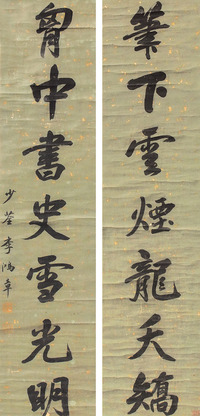 筆下雲煙龍夭矯
胷中書史雪光明
少荃李鴻章